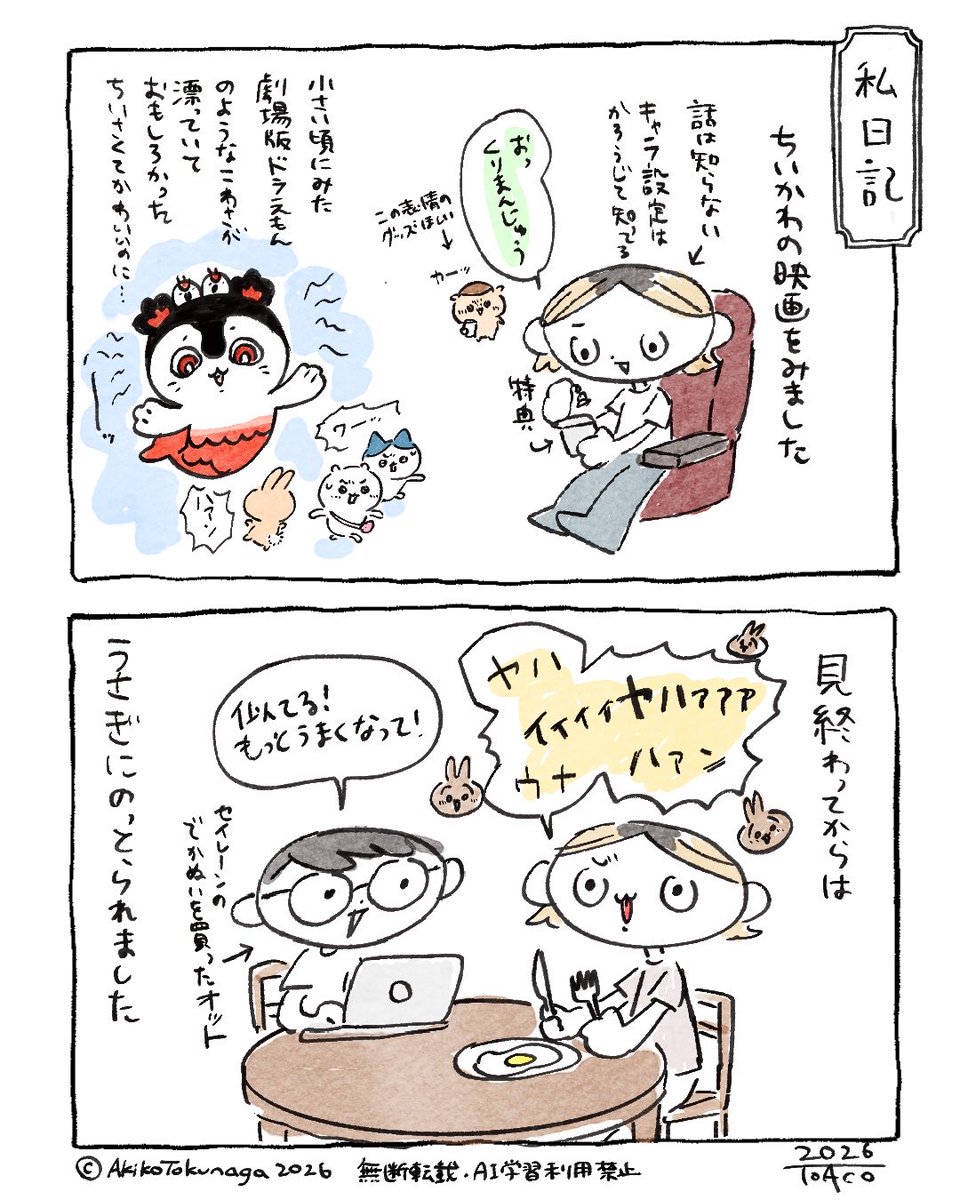 私日記
ちいかわの映画をみました
話は知らない
キャラ設定は
かろうじて知ってる
おっ
くりまんじゅう
この表情の
グッズほしい
カーッ
特典
小さい頃にみた
劇場版ドラえもん
のようなこわさが
漂っていて
おもしろかった
ちいさくてかわいいのに…
ワーッ
ハァン
見終わってからは
ヤハ
イィィィヤハァァァ
ウナ
ハァン
似てる!
もっとうまくなって!
セイレーンの
でかぬいを買ったオット
うさぎにのっとられました
©AkikoTokunaga2026 無断転載・AI学習利用禁止
2026
ToAco